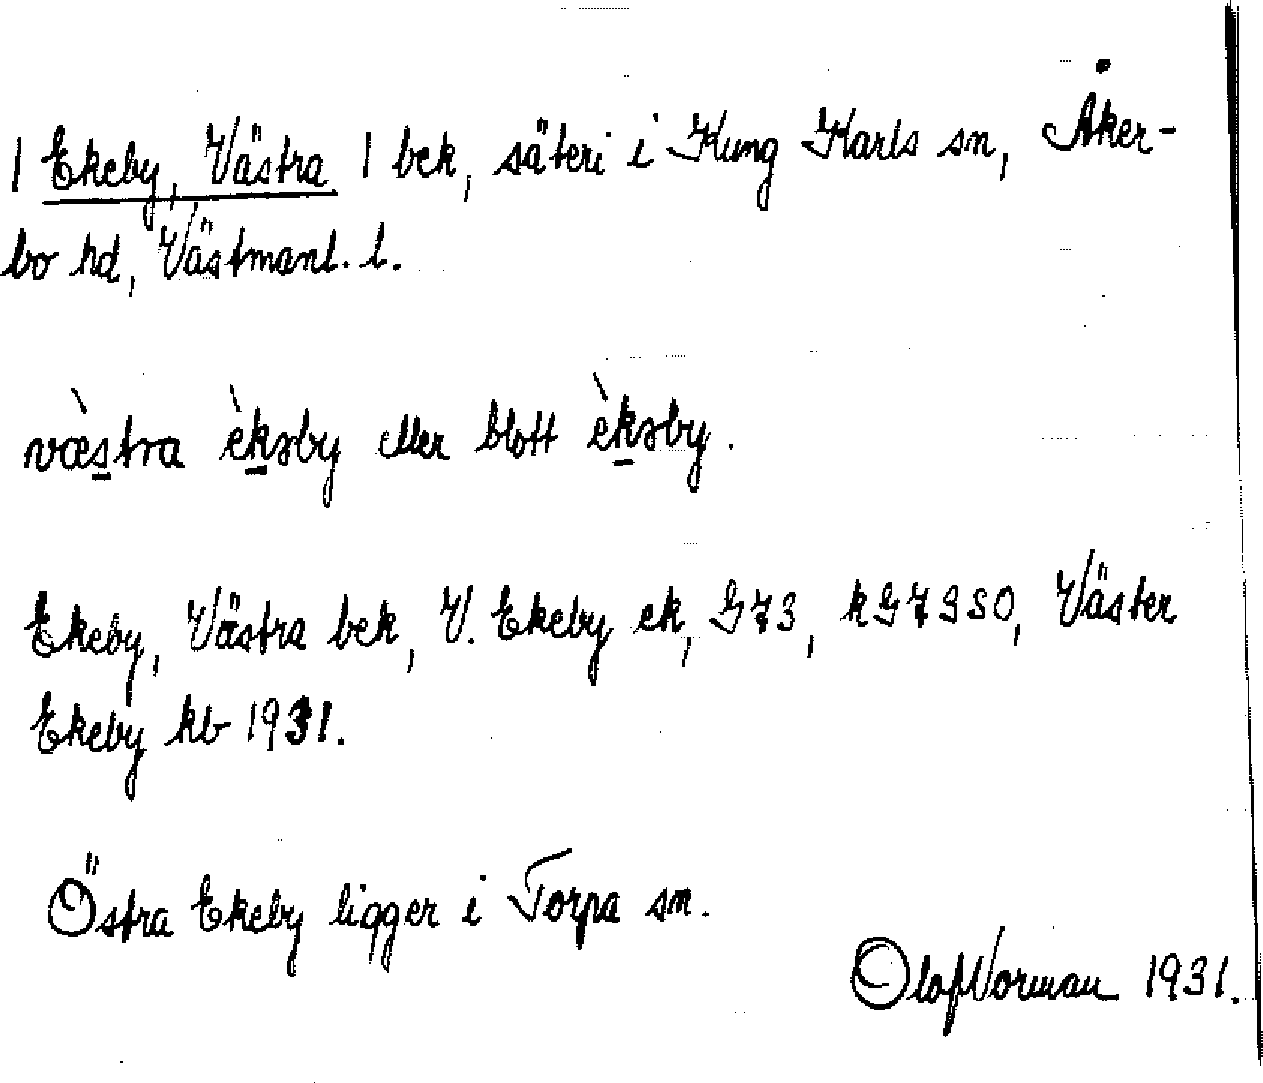 1 Ekeby, Västra 1 bek, säteri i Kung Karls sn, Åker-
bo hd, Västmanl. l.
væ̀stra èkəby eller blott èkəby.
Ekeby, Västra bek, V. Ekeby ek, G73, kG7350, Väster
Ekeby kb 1931.
Östra Ekeby ligger i Torpa sn.
Olof Norman 1931.